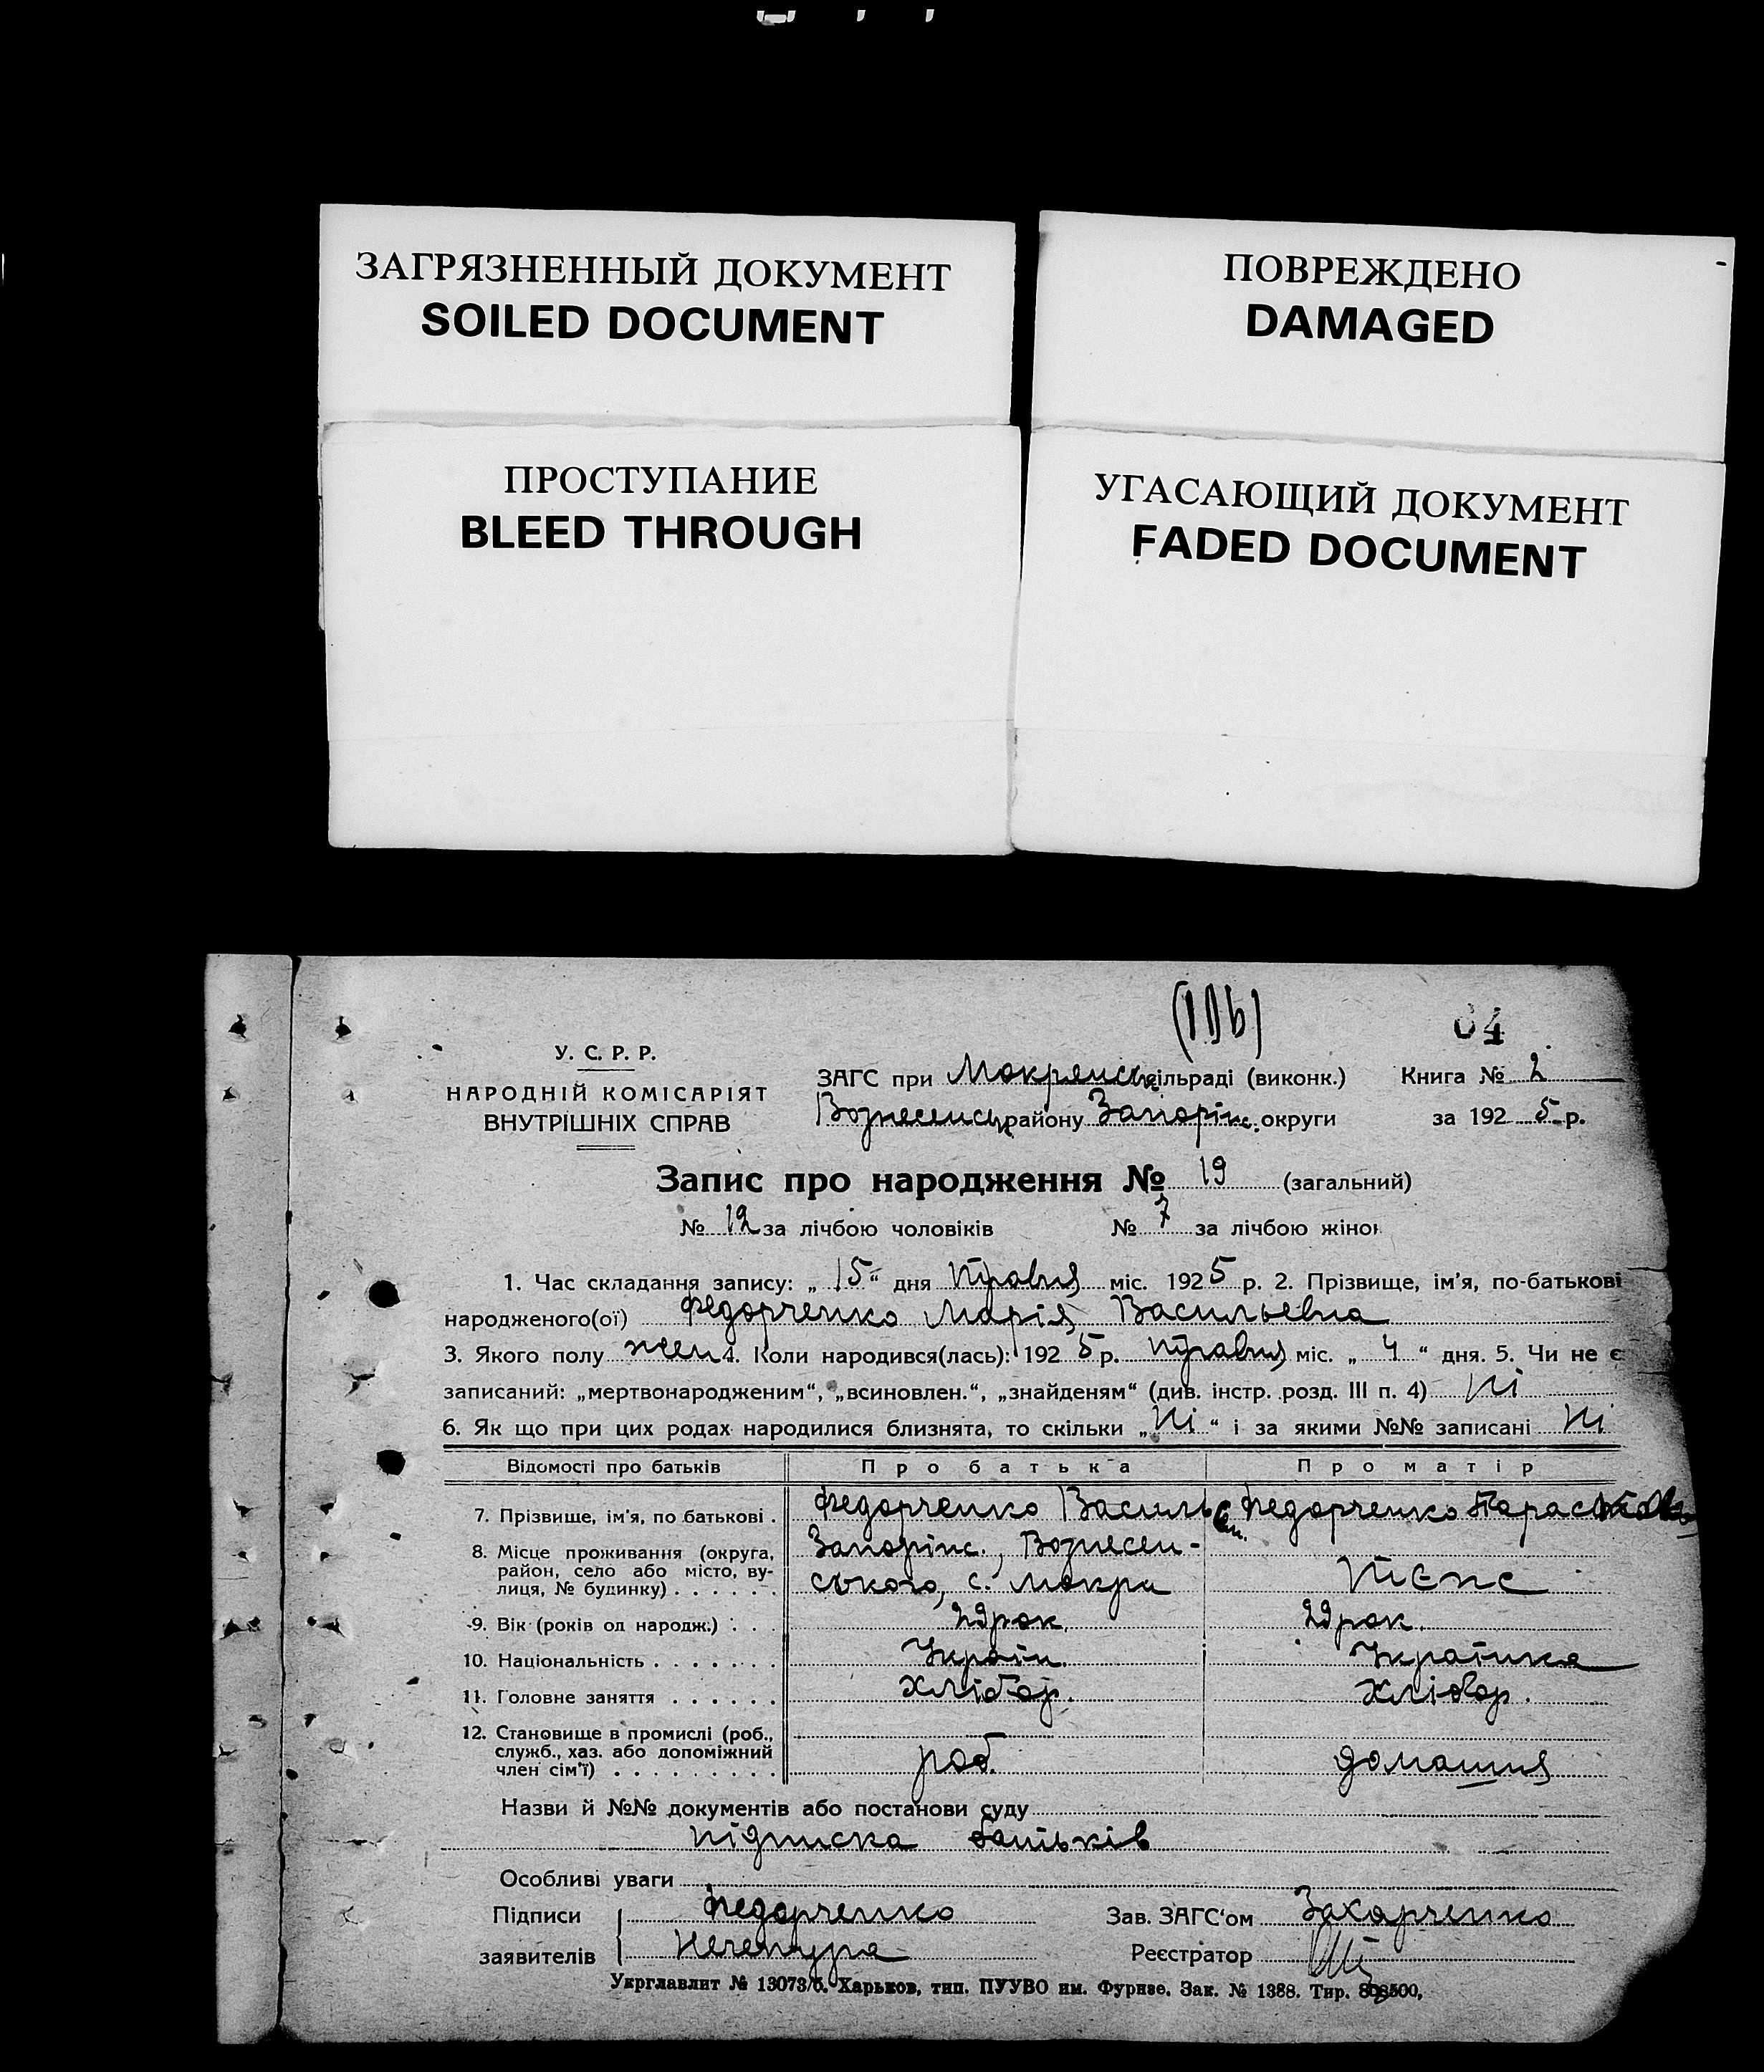 ЗАГРЯЗНЕННЫЙ ДОКУМЕНТ
SOILED DOCUMENT
ПОВРЕЖДЕНО
DAMAGED
ПРОСТУПАНИЕ
BLEED THROUGH
УГАСАЮЩИЙ ДОКУМЕНТ
FADED DOCUMENT
(196) 64
У. С. Р. Р.
НАРОДНІЙ КОМІСАРІЯТ
ВНУТРІШНІХ СПРАВ
ЗАГС при Мокрянськ сільраді (виконк.) Книга № 2
Вознесенськ району Запоріж. округи за 1925 р.
Запис про народження № 19 (загальний)
№ 12 за лічбою чоловіків № 7 за лічбою жінок
1. Час складання запису: „15“ дня травня міс. 1925 р. 2. Прізвище, ім'я, по-батькові
народженого(ої) Федорченко Марія Васильевна
3. Якого полу жен 4. Коли народився(лась): 1925 р. травня міс. „4“ дня. 5. Чи не є
записаний: „мертвонародженим“, „всиновлен.“, „знайденям“ (див. інстр. розд. III п. 4) Ні
6. Як що при цих родах народилися близнята, то скільки „Ні“ і за якими №№ записані Ні
Відомості про батьків Про батька Про матір
7. Прізвище, ім'я, по батькові . Федорченко Василь Федорченко Параск
8. Місце проживання (округа, Запоріж., Вознесен-
район, село або місто, ву-
лиця, № будинку) . . . . . . ського, с. Мокра
9. Вік (років од народж.) . . . 29 рок. 29 рок.
10. Національність . . . . . . . Україн. Українка
11. Головне заняття . . . . . . Хлібор. Хлібор.
12. Становище в промислі (роб.,
служб., хаз. або допоміжний
член сім'ї) . . . . . . . . . роб. домашня
Назви й №№ документів або постанови суду
підписка батьків
Особливі уваги
Підписи Федорченко Зав. ЗАГС'ом Захарченко
заявителів Нечепура Реєстратор
Укрглавлит № 13073/б. Харьков, тип. ПУУВО им. Фрунзе. Зак. № 1388. Тир.